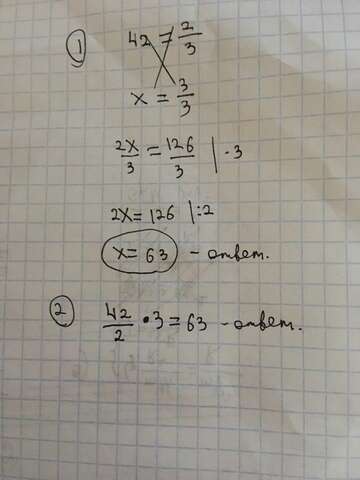 1
42 = 2/3
x = 3/3
2x/3 = 126/3 | · 3
2x = 126 | :2
x = 63 - ответ.
2
42/2 · 3 = 63 - ответ.